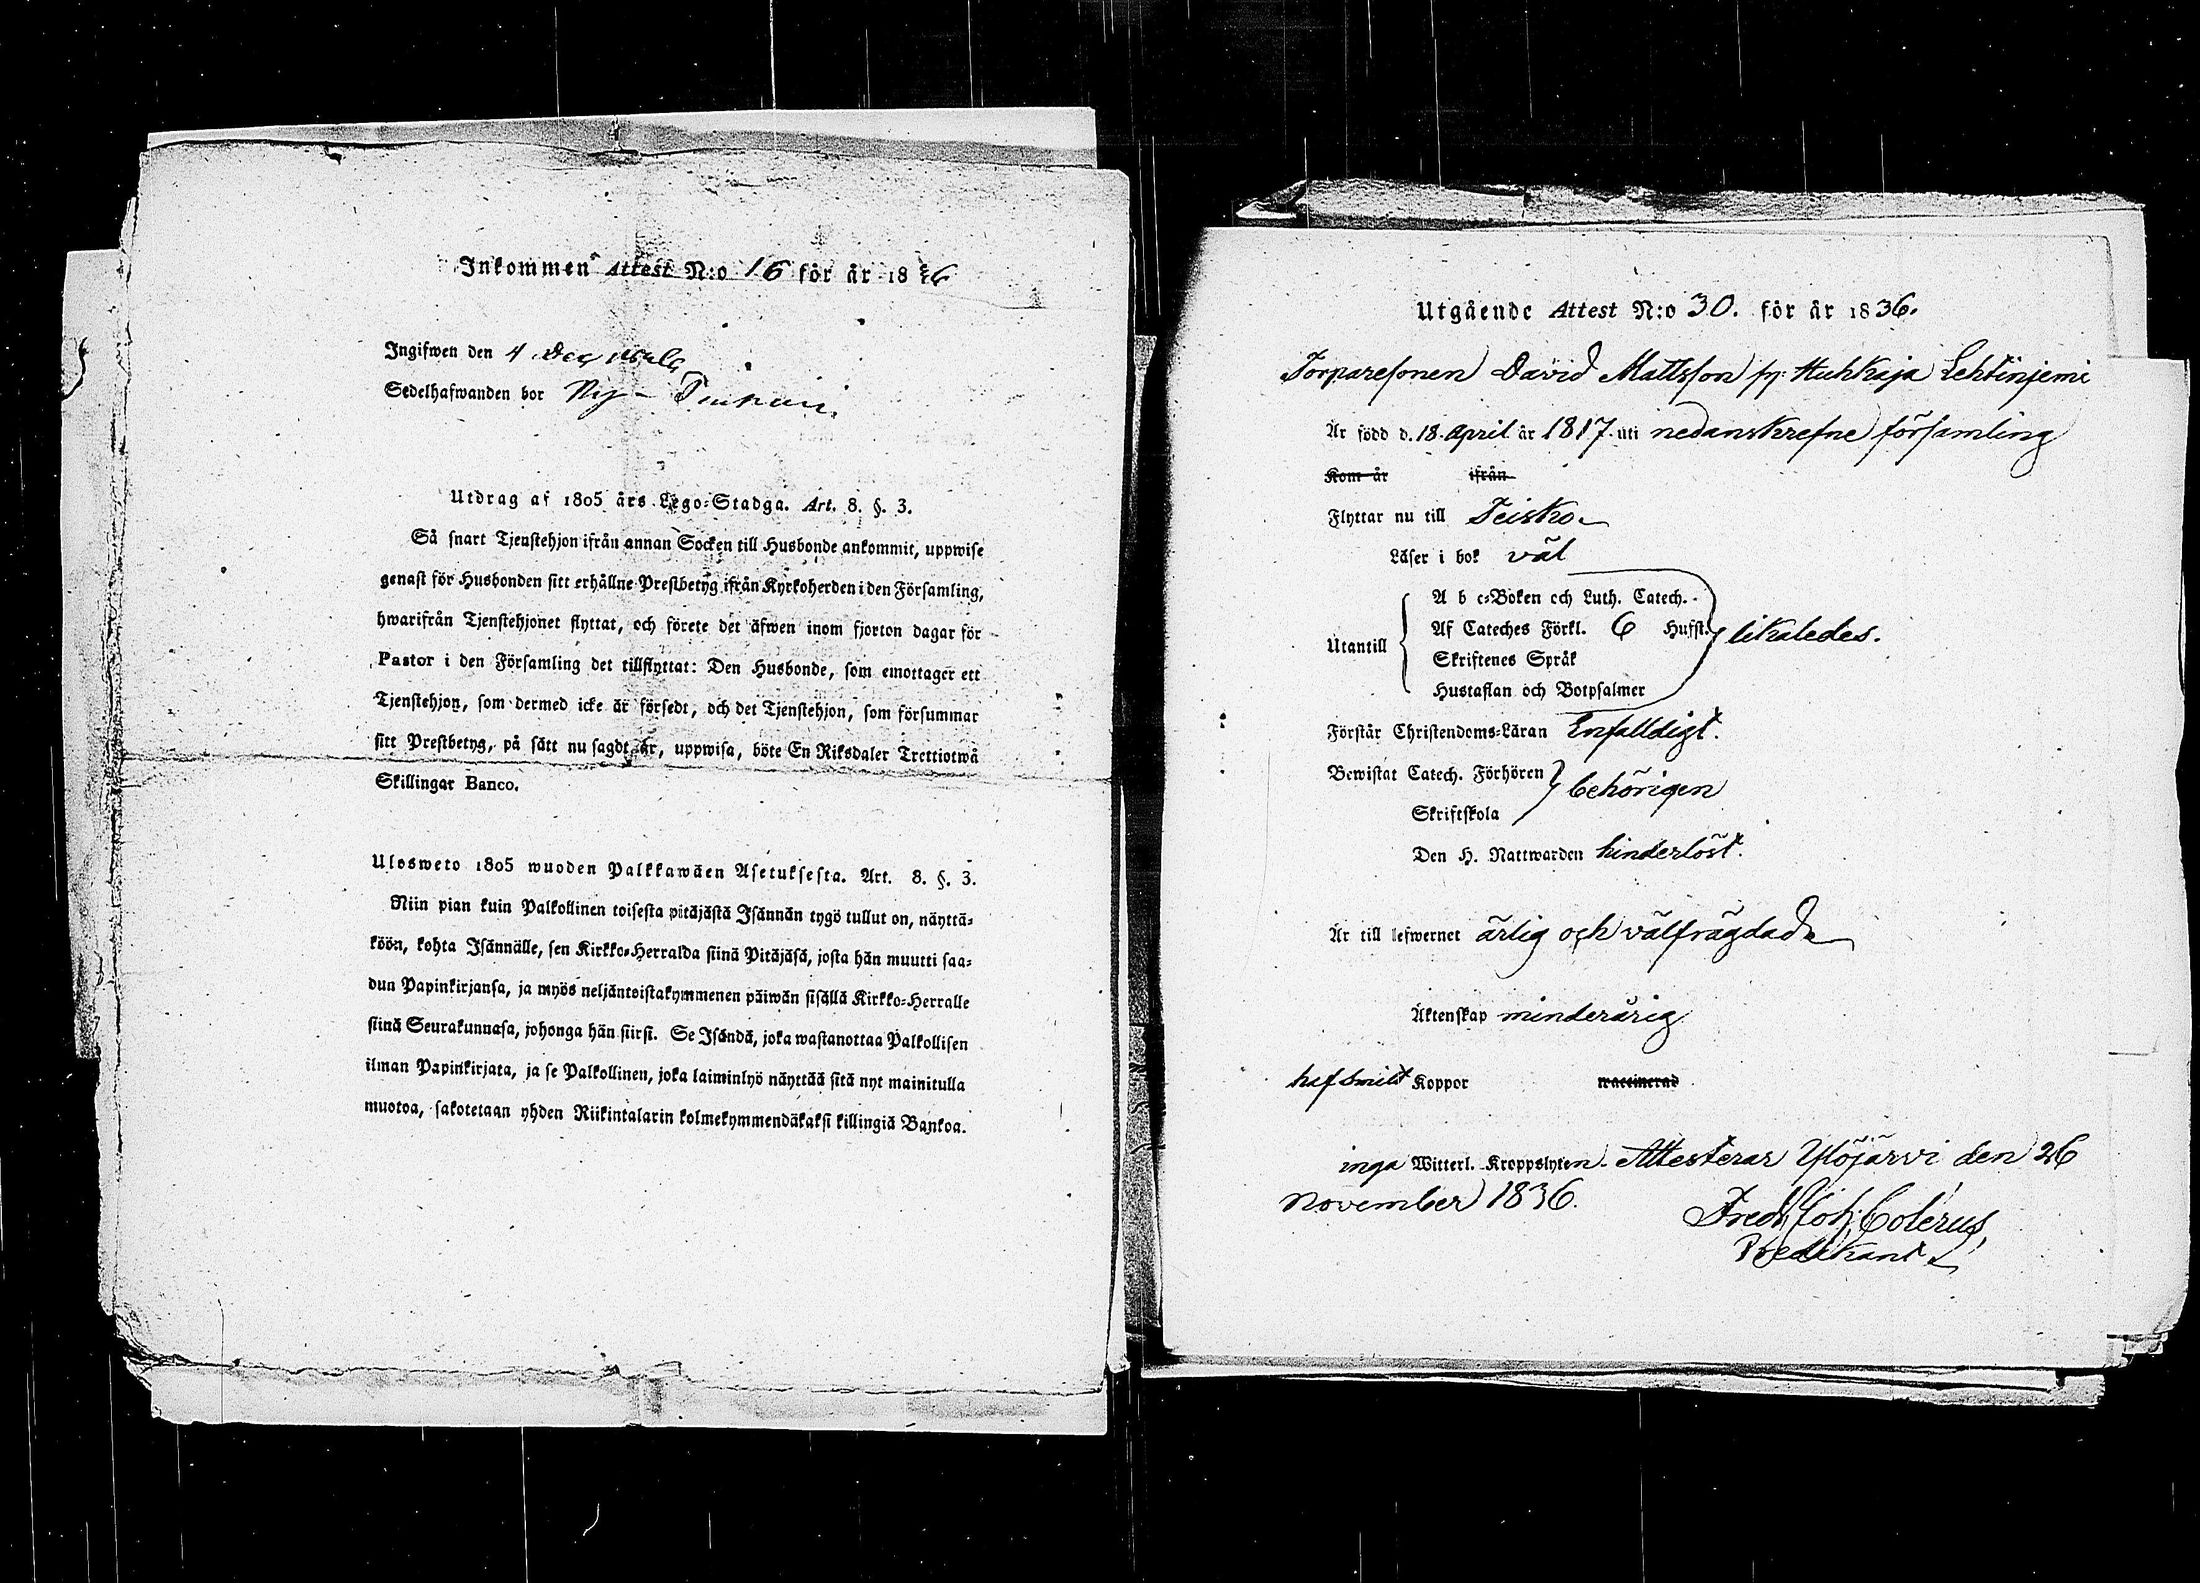 Inkommen Attest N:o 16 för år 1836
Ingifwen den 4 Dec
Sedelhafwanden bor Ny-
Utdrag af 1805 års Lego-Stadga. Art. 8. §. 3.
Så snart Tjenstehjon ifrån annan Socken till Husbonde ankommit, uppwise
genast för Husbonden sitt erhållne Prestbetyg ifrån Kyrkoherden i den Församling,
hwarifrån Tjenstehjonet flyttat, och förete det äfwen inom fjorton dagar för
Pastor i den Församling det tillflyttat: Den Husbonde, som emottager ett
Tjenstehjon, som dermed icke är försedt, och det Tjenstehjon, som försummar
sitt Prestbetyg, på sätt nu sagdt är, uppwisa, böte En Riksdaler Trettiotwå
Skillingar Banco.
Ulosweto 1805 wuoden Palkkawäen Asetuksesta. Art. 8. §. 3.
Niin pian kuin Palkollinen toisesta pitäjästä Isännän tygö tullut on, näyttä-
köön, kohta Isännälle, sen Kirkko-Herralda siinä Pitäjäsä, josta hän muutti saa-
dun Papinkirjansa, ja myös neljäntoistakymmenen päiwän sisällä Kirkko-Herralle
siinä Seurakunnasa, johonga hän siirsi. Se Isändä, joka wastanottaa Palkollisen
ilman Papinkirjata, ja se Palkollinen, joka laiminlyö näyttää sitä nyt mainitulla
muotoa, sakotetaan yhden Riikintalarin kolmekymmendäkaksi killingiä Bankoa.
Utgående Attest N:o 30. för år 1836.
Torparesonen David Mattsson fr: Huhkaja Lehtinjemi
Är född d. 18. April år 1817. uti nedanskrefne församling
Kom år ifrån
Flyttar nu till Teisko
Läser i bok väl
A b c-Boken och Luth. Catech.
Af Cateches Förkl. 6 Hufst.
Utantill likaledes.
Skriftenes Språk
Hustaflan och Botpsalmer
Förstår Christendoms-Läran Enfalldigt.
Bewistat Catech. Förhören behörigen
Skriftskola
Den H. Nattwarden hinderlöst.
Är till lefwernet ärlig och välfrägdade
Äktenskap minderårig
haf smitt Koppor waccinerad
inga Witterl. Kroppslyten. Attesterar Ylöjärvi den 26
November 1836.
Fredr. Joh. Colerus,
Predikant